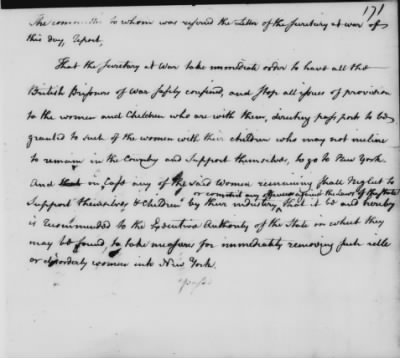 171
The committee to whom was referred the Letter of the Secretary at war of
this day, Report,
That the Secretary at War take immediate order to have all the
British Prisoners of War safely confined, and stop all issues of provision
to the women and Children who are with them, directing passports to be
granted to such of the women with their children who may not incline
to remain in the Country and Support themselves, to go to New York.
And in Case any of the said Women remaining Shall Neglect to
or commit any offence against the laws of the State
Support themselves & Children by their industry, that it be and hereby
is Recommended to the Executive Authority of the State in which they
may be found, to take measures for immediately removing such idle
or disorderly women into New York.
passed